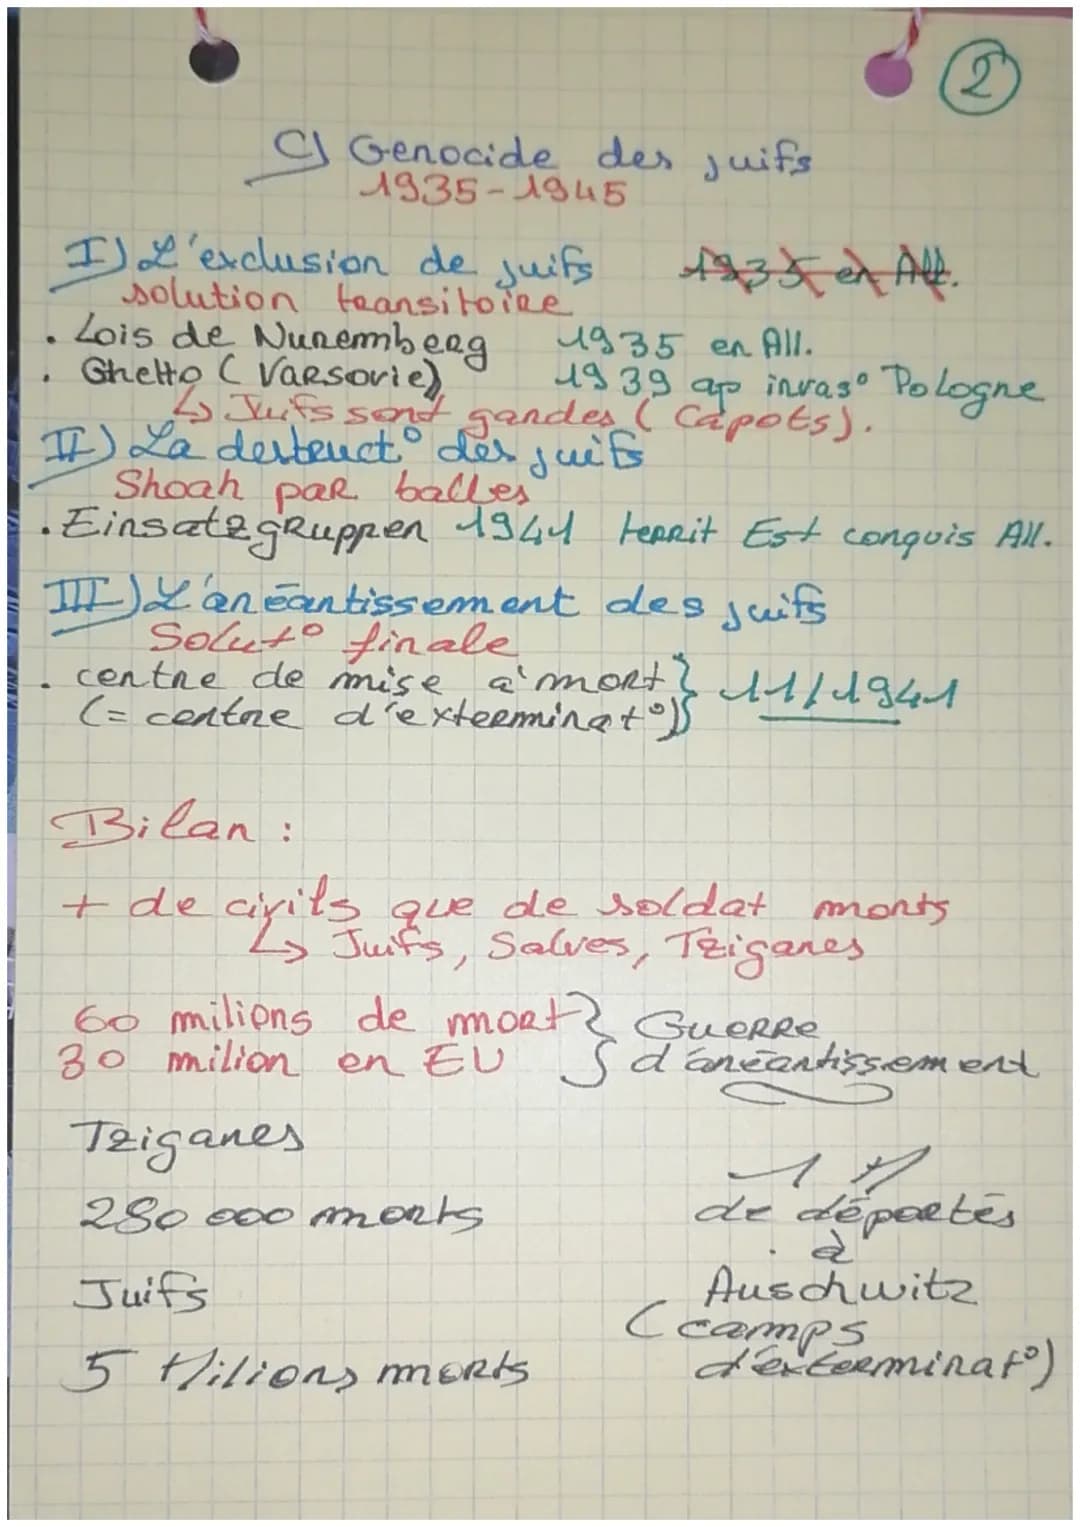 2
C) Genocide des juifs
1935-1945
I) L'exclusion de juifs 1935 en All.
solution transitoire
. Lois de Nuremberg 1935 en All.
. Ghetto (Varsovie) 1939 ap invas° Pologne
↳ Juifs sont gandes (Capots).
II) La destruct° des juifs
Shoah par balles
. Einsatzgruppen 1941 territ Est conquis All.
III) L'anéantissement des juifs
Solut° finale
. centre de mise à mort } 11/1941
(= centre d'exterminat°) }
Bilan :
+ de civils que de soldat morts
↳ Juifs, Salves, Tziganes
60 milions de mort } Guerre
30 milion en EU } d'anéantissement
Tziganes
280 000 morts
Juifs
5 Milions morts
1
de déportés
à
Auschwitz
(camps
d'exterminat°)